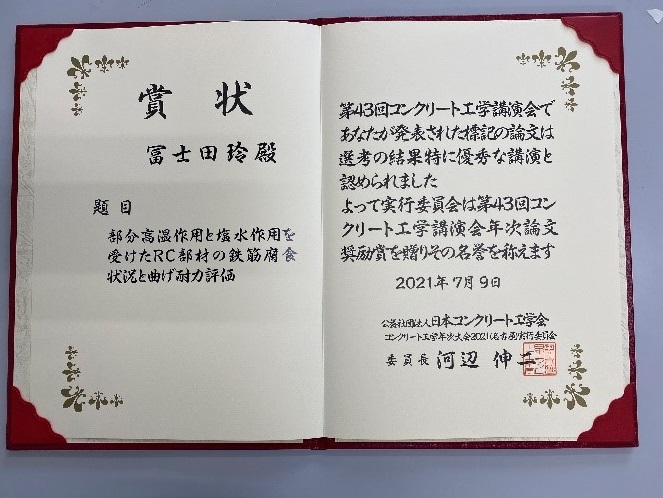 賞状
冨士田玲殿
題目
部分高湿作用と塩水作用を
受けたRC部材の鉄筋腐食
状況と曲げ耐力評価
第43回コンクリート工学講演会で
あなたが発表された標記の論文は
選考の結果特に優秀な講演と
認められました
よって実行委員会は第43回コン
クリート工学講演会年次論文
奨励賞を贈りその名誉を称えます
2021年7月9日
公益社団法人日本コンクリート工学会
コンクリート工学年次大会2021(名古屋)実行委員会
委員長 河辺伸二